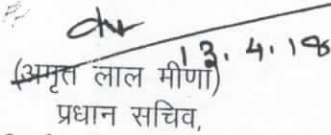 13.4.18
(अमृत लाल मीणा)
प्रधान सचिव,